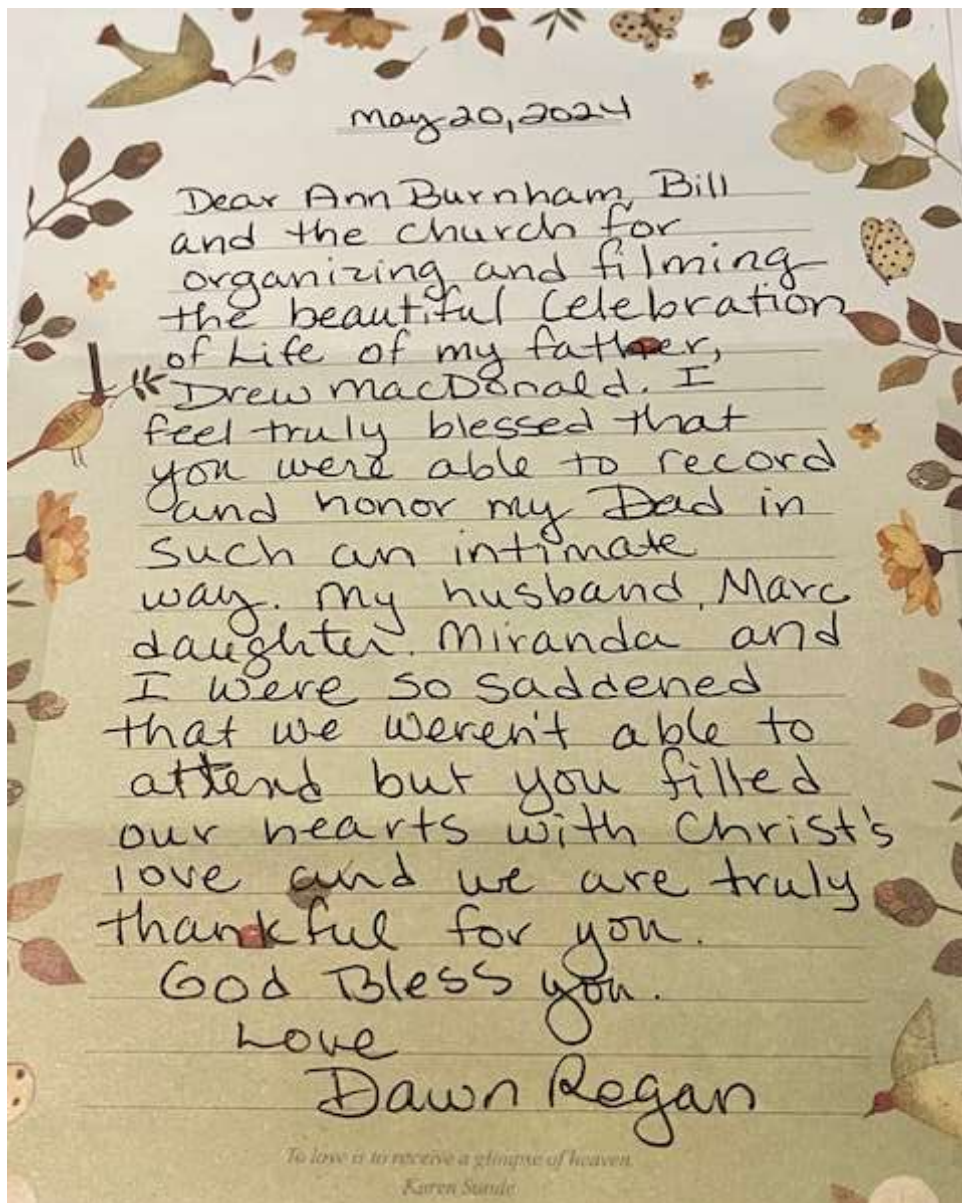 May 20, 2024
Dear Ann Burnham, Bill
and the church for
organizing and filming
the beautiful Celebration
of Life of my father,
Drew MacDonald. I
feel truly blessed that
you were able to record
and honor my Dad in
such an intimate
way. My husband, Marc
daughter. Miranda and
I were so saddened
that we weren't able to
attend but you filled
our hearts with Christ's
love and we are truly
thankful for you.
God Bless you.
Love
Dawn Regan
To love is to receive a glimpse of heaven.
Karen Sunde